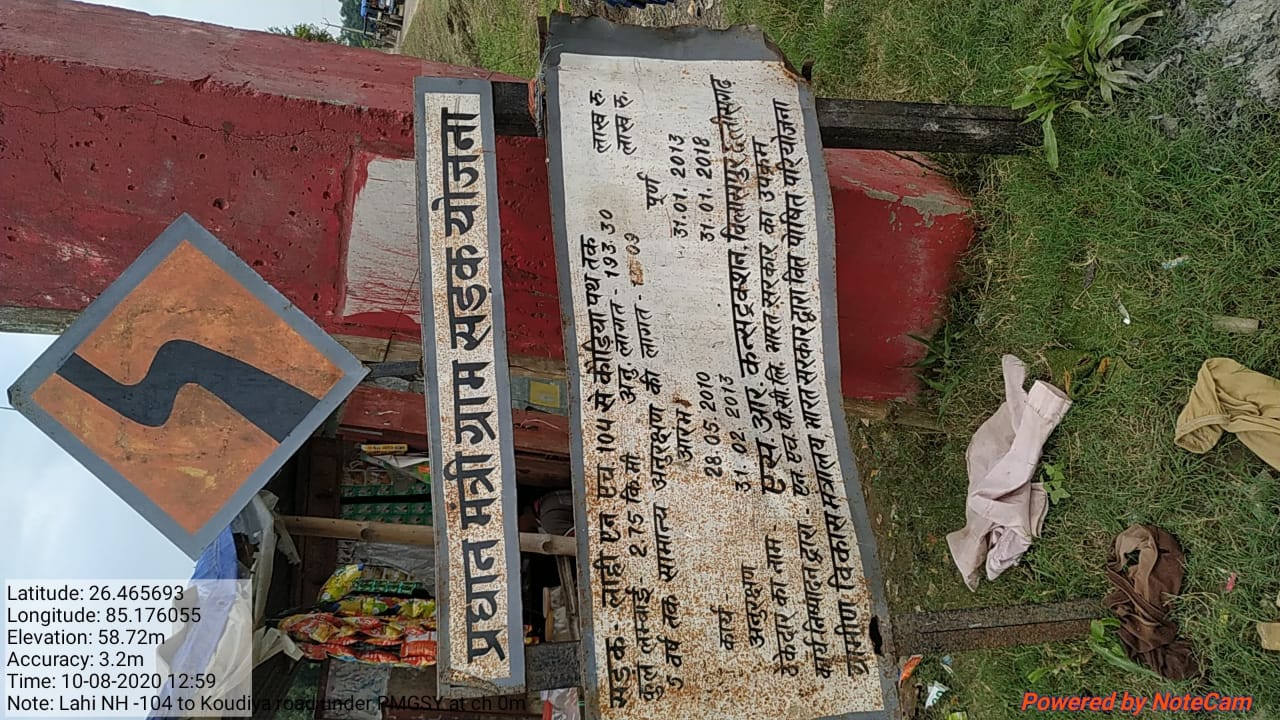 प्रधान मंत्री ग्राम सड़क योजना
सड़क - लाही एन एच 104 से कौड़िया पथ तक
कुल लम्बाई - 2.75 कि.मी. अनु. लागत - 193.30 लाख रु.
5 वर्ष तक सामान्य अनुरक्षण की लागत - 09 लाख रु.
आरंभ पूर्ण
कार्य - 28.05.2010 31.01.2013
अनुरक्षण 31.02.2013 31.01.2018
ठेकेदार का नाम - एस. आर. कन्सट्रक्शन, बिलासपुर, छत्तीसगढ़
कार्य क्रियान्वन द्वारा - एन. एच. पी. सी. लि. भारत सरकार का उपक्रम
ग्रामीण विकास मंत्रालय भारत सरकार द्वारा वित्त पोषित परियोजना
Latitude: 26.465693
Longitude: 85.176055
Elevation: 58.72m
Accuracy: 3.2m
Time: 10-08-2020 12:59
Note: Lahi NH -104 to Koudiya road under PMGSY at ch 0m
Powered by NoteCam